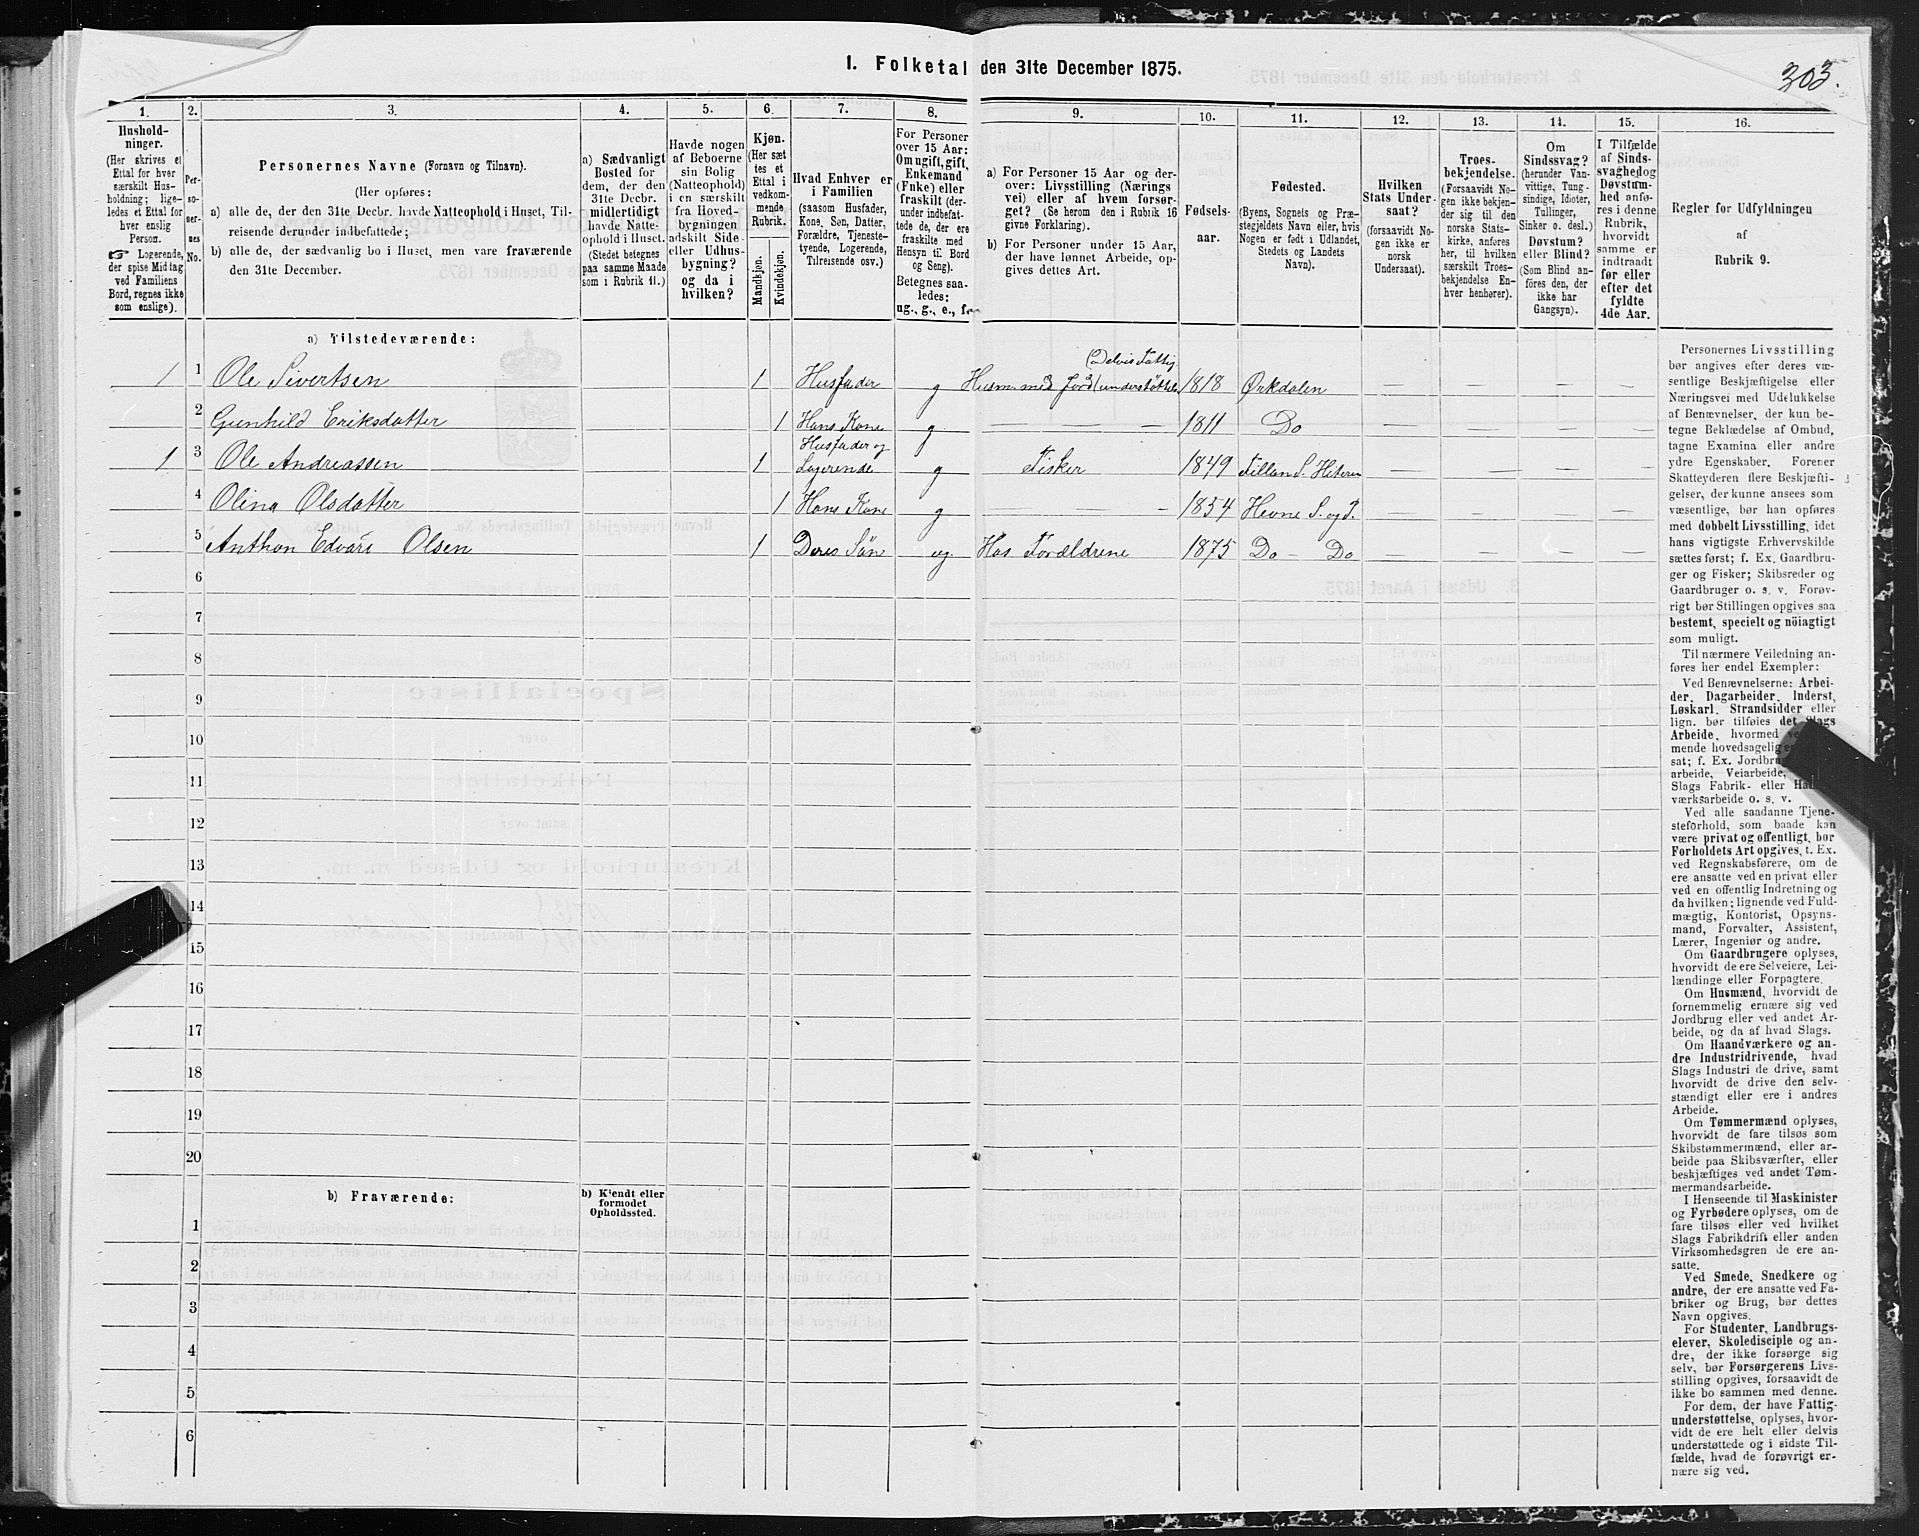 I. Folketal den 31te December 1875.
303.
1.
Hushold-
ninger.
(Her skrives et
Ettal for hver
særskilt Hus-
holdning; lige-
ledes et Ettal for
hver enslig
Person.
☞ Logerende,
der spise Middag
ved Familiens
Bord, regnes ikke
som enslige).
2.
Per-
so-
ner-
nes
No.
3.
Personernes Navne (Fornavn og Tilnavn).
(Her opføres:
a) alle de, der den 31te Decbr. havde Natteophold i Huset, Til-
reisende derunder indbefattede;
b) alle de, der sædvanlig bo i Huset, men vare fraværende
den 31te December.
4.
a) Sædvanligt
Bosted for
dem, der den
31te Decbr.
midlertidigt
havde Natte-
ophold i Huset.
(Stedet betegnes
paa samme Maade
som i Rubrik 11.)
5.
Havde nogen
af Beboerne
sin Bolig
(Natteophold)
i en særskilt
fra Hoved-
bygningen
adskilt Side-
eller Udhus-
bygning?
og da i
hvilken?
6.
Kjøn.
(Her sæt
tes et
Ettal i
vedkom-
mende
Rubrik.
Mandkjøn.
Kvindekjøn.
7.
Hvad Enhver er
i Familien
(saasom Husfader,
Kone, Søn, Datter,
Forældre, Tjeneste-
tyende, Logerende,
Tilreisende osv.)
8.
For Personer
over 15 Aar:
Om ugift, gift,
Enkemand
(Enke) eller
fraskilt (der-
under indbefat-
tede de, der ere
fraskilte med
Hensyn til Bord
og Seng).
Betegnes saa-
ledes:
ug., g., e., f.
9.
a) For Personer 15 Aar og der-
over: Livsstilling (Nærings
vei) eller af hvem forsør-
get? (Se herom den i Rubrik 16
givne Forklaring).
b) For Personer under 15 Aar,
der have lønnet Arbeide, op-
gives dettes Art.
10.
Fødsels-
aar.
11.
Fødested.
(Byens, Sognets og Præ-
stegjeldets Navn eller, hvis
Nogen er født i Udlandet,
Stedets og Landets
Navn).
12.
Hvilken
Stats Under-
saat?
(forsaavidt No-
gen ikke er
norsk
Undersaat).
13.
Troes-
bekjendelse.
(Forsaavidt No-
gen ikke bekjen-
der sig til den
norske Stats-
kirke, anføres
her, til hvilken
særskilt Troes-
bekjendelse En-
hver henhører).
14.
Om
Sindssvag?
(herunder Van-
vittige, Tung-
sindige, Idioter,
Tullinger,
Sinker o. desl.)
Døvstum?
eller Blind?
(Som Blind an-
føres den, der
ikke har
Gangsyn).
15.
I Tilfælde
af Sinds-
svaghed og
Døvstum-
hed anfø-
res i denne
Rubrik,
hvorvidt
samme er
indtraadt
før eller
efter det
fyldte
4de Aar.
16.
Regler for Udfyldningen
af
Rubrik 9.
a) Tilstedeværende:
1 1 Ole Sivertsen 1 Husfader g Husm. med Jord (Delvis Fattig understøttet 1818 Ørkdalen — — — —
2 Gunhild Eriksdatter 1 Hans Kone g — — — 1811 Do — — — —
1 3 Ole Andreassen 1 Husfader og Logerende g Fisker 1849 Fillan S. Hiteren — — — —
4 Olina Olsdatter 1 Hans Kone g — — — 1854 Hevne S. og P. — — — —
5 Anthon Edvart Olsen 1 Deres Søn ug. Hos Forældrene 1875 Do — Do — — — —
6
7
8
9
10
11
12
13
14
15
16
17
18
19
20
b) Fraværende:
b) Kjendt eller
formodet
Opholdssted.
1
2
3
4
5
6
Personernes Livsstilling
bør angives efter deres væ-
sentlige Beskjæftigelse eller
Næringsvei med Udelukkelse
af Benævnelser, der kun be-
tegne Beklædelse af Ombud,
tagne Examina eller andre
ydre Egenskaber. Forener
Skatteyderen flere Beskjæfti-
gelser, der kunne ansees som
væsentlige, bør han opføres
med dobbelt Livsstilling, idet
hans vigtigste Erhvervskilde
sættes først; f. Ex. Gaardbru-
ger og Fisker; Skibsreder og
Gaardbruger o. s. v. Forøv-
rigt bør Stillingen opgives saa
bestemt, specielt og nöiagtigt
som muligt.
Til nærmere Veiledning an-
føres her endel Exempler:
Ved Benævnelserne: Arbei-
der, Dagarbeider, Inderst,
Løskarl, Strandsidder eller
lign. bør tilføies det Slags
Arbeide, hvormed
mende hovedsagelig
sat; f. Ex. Jordbru
arbeide, Veiarbeide,
Slags Fabrik- eller
værksarbeide o. s. v.
Ved alle saadanne Tjene-
steforhold, som baade kan
være privat og offentligt, bør
Forholdets Art opgives, t. Ex.
ved Regnskabsførere, om de
ere ansatte ved en privat eller
ved en offentlig Indretning og
da hvilken; lignende ved Fuld-
mægtig, Kontorist, Opsyns-
mand, Forvalter, Assistent,
Lærer, Ingeniør og andre.
Om Gaardbrugere oplyses,
hvorvidt de ere Selveiere, Lei-
lændinge eller Forpagtere.
Om Husmænd, hvorvidt de
fornemmelig ernære sig ved
Jordbrug eller ved andet Ar-
beide, og da af hvad Slags.
Om Haandværkere og an-
dre Industridrivende, hvad
Slags Industri de drive, samt
hvorvidt de drive den selv-
stændigt eller ere i andres
Arbeide.
Om Tømmermænd oplyses,
hvorvidt de fare tilsøs som
Skibstømmermænd, eller ar-
beide paa Skibsværfter, eller
beskjæftiges ved andet Tøm-
mermandsarbeide.
I Henseende til Maskinister
og Fyrbødere oplyses, om de
fare tilsøs eller ved hvilket
Slags Fabrikdrift eller anden
Virksomhedsgren de ere an-
satte.
Ved Smede, Snedkere og
andre, der ere ansatte ved Fa-
briker og Brug, bør dettes
Navn opgives.
For Studenter, Landbrugs-
elever, Skoledisciple og an-
dre, der ikke forsørge sig
selv, bør Forsørgerens Livs-
stilling opgives, forsaavidt de
ikke bo sammen med denne.
For dem, der have Fattig-
understøttelse, oplyses, hvor-
vidt de ere helt eller delvis
understøttede og i sidste Til-
fælde, hvad de forøvrigt er-
nære sig ved.